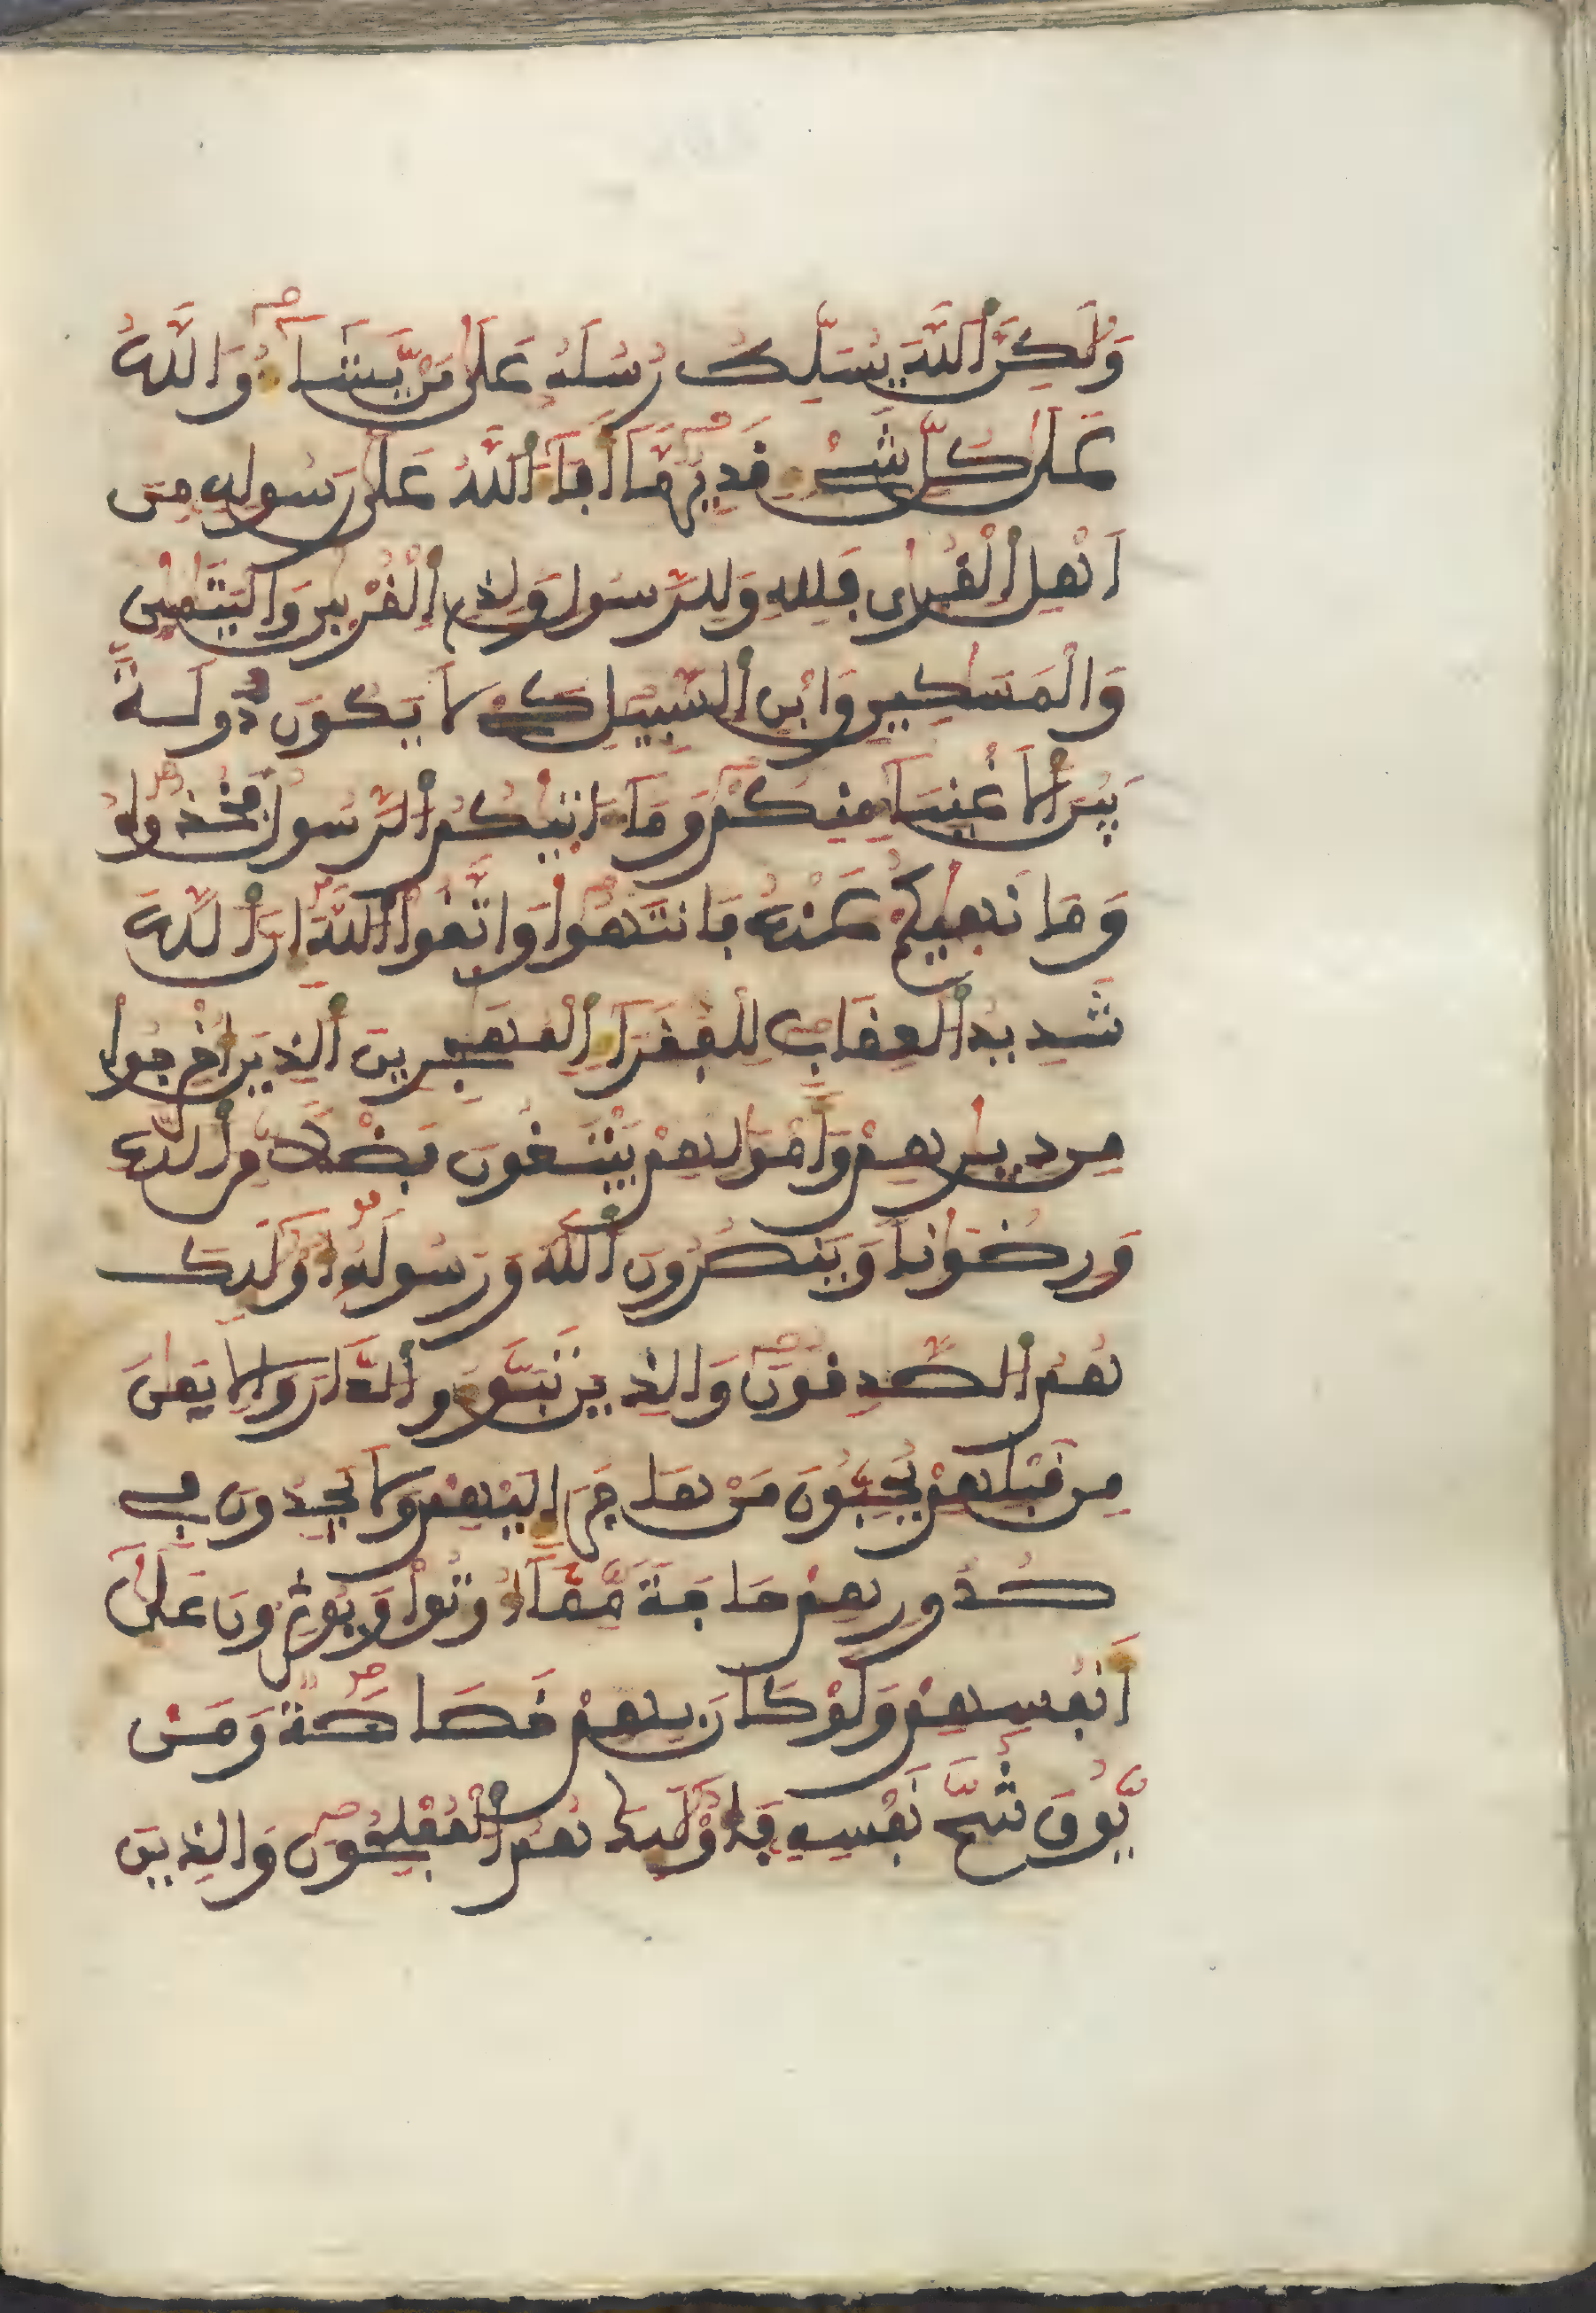 وَلَٰكِنَّ اَ۬للَّهَ يُسَلِّطُ رُسُلَهُ عَلَىٰ مَنْ يَّشَآءُ وَاللَّهُ
عَلَىٰ كُلِّ شَےْءٖ قَدِيرٌ مَّآ أَفَآءَ اَ۬للَّهُ عَلَىٰ رَسُولِهِ مِنَ
اَهْلِ اِ۬لْقُر۪ىٰ فَلِلهِ وَلِلرَّسُولِ وَلِذِے اِ۬لْقُرْب۪ىٰ وَالْيَتَٰم۪ىٰ
وَالْمَسَٰكِينِ وَابْنِ اِ۬لسَّبِيلِ كَےْ لَا يَكُونَ دُولَةَۢ
بَيْنَ اَ۬لَاغْنِيَآءِ مِنكُمْ وَمَآ ءَات۪يٰكُمُ اُ۬لرَّسُولُ فَخُذُوهُ
وَمَا نَه۪يٰكُمْ عَنْهُ فَانتَهُواْ وَاتَّقُواْ اُ۬للَّهَ إِنَّ اَ۬للَّهَ
شَدِيدُ اُ۬لْعِقَابِ لِلْفُقَرَآءِ اِ۬لْمُهَٰجِرِينَ اَ۬لذِينَ أُخْرِجُواْ
مِن دِيٰرِهِمْ وَأَمْوَٰلِهِمْ يَبْتَغُونَ فَضْلاٗ مِّنَ اَ۬للَّهِ
وَرِضْوَٰناٗ وَيَنصُرُونَ اَ۬للَّهَ وَرَسُولَهُۥٓ أُوْلَٰٓئِكَ
هُمُ اُ۬لصَّٰدِقُونَ وَالذِينَ تَبَوَّءُو اُ۬لدَّارَ وَالِايمَٰنَ
مِن قَبْلِهِمْ يُحِبُّونَ مَنْ هَاجَرَ إِلَيْهِمْ وَلَا يَجِدُونَ فِے
صُدُورِهِمْ حَاجَةٗ مِّمَّآ أُوتُواْ وَيُوثِرُونَ عَلَىٰٓ
أَنفُسِهِمْ وَلَوْ كَانَ بِهِمْ خَصَاصَةٞ وَمَنْ
يُّوقَ شُحَّ نَفْسِهِ فَأُوْلَٰٓئِكَ هُمُ اُ۬لْمُفْلِحُونَ وَالذِينَ